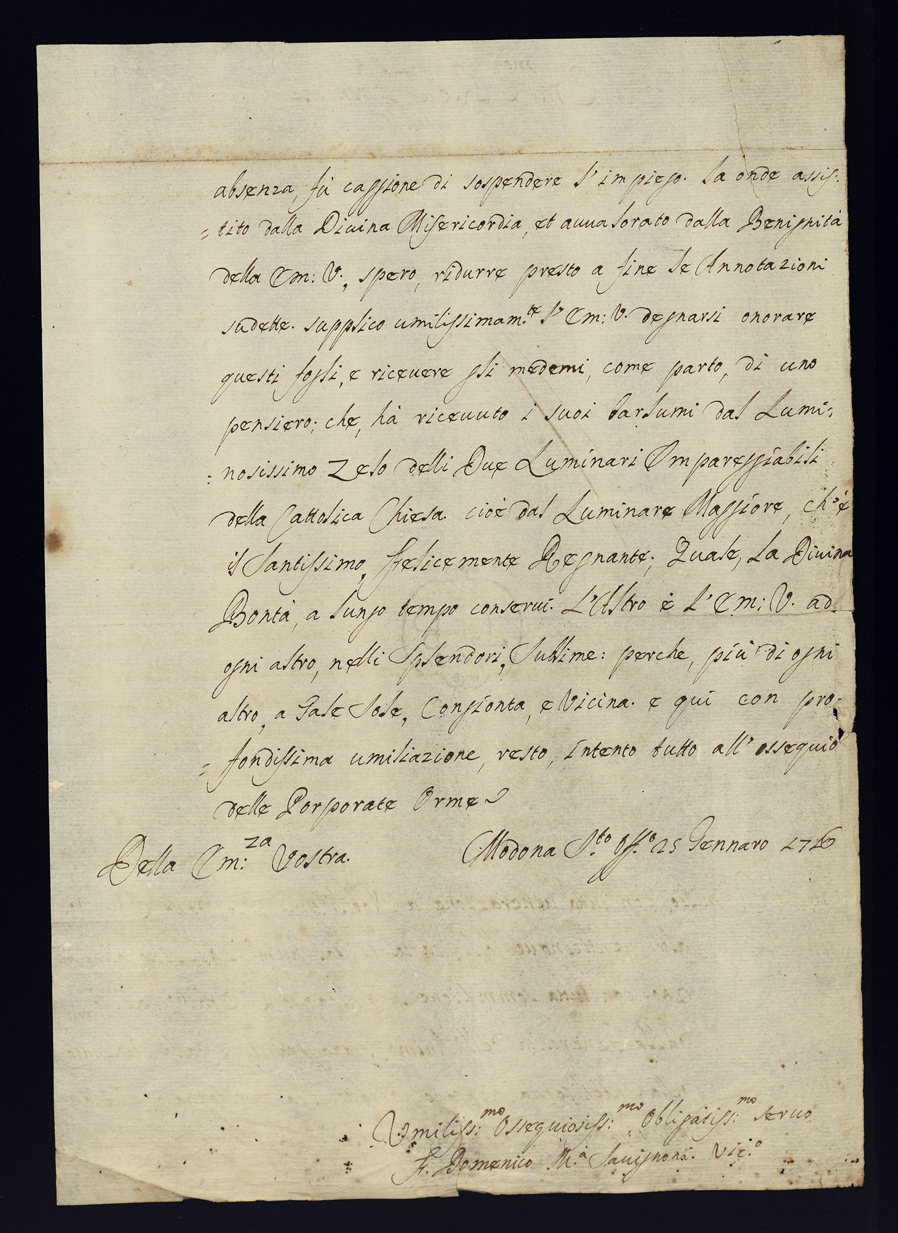 absenza, fù caggione di sospendere l'impiego. la onde assis:
= tito dalla Divina Misericordia, et avvalorato dalla Benignità
della Em: V., spero, ridurre presto a fine le Annotazioni
sudette. supplico umilissimam.te l' Em: V. degnarsi onorare
questi fogli, e ricevere gli medemi, come parto, di uno
pensiero; che, hà ricevuto i suoi barlumi dal Lumi:
: nosissimo Zelo delli Due Luminari Impareggiabili
della Cattolica Chiesa. cioè dal Luminare Maggiore, ch'è
il Santissimo, ffelicemente Regnante; Quale, La Divina
Bontà, a lungo tempo conservi. L'Astro è l' Em: V. ad
ogni altro, nelli Splendori, Sublime: perche, più di ogni
altro, a Tale Sole, Congionta, e Vicina. e qui con pro-
= fondissima umiliazione, resto, intento tutto all' ossequio
delle Porporate Orme
Della Em:za Vostra. Modona S.to Off.o 25 Gennaro 1716
Umiliss:mo Ossequiosiss:mo Obligatiss:mo servo
F. Domenico M.a Savignoni. Vic.o